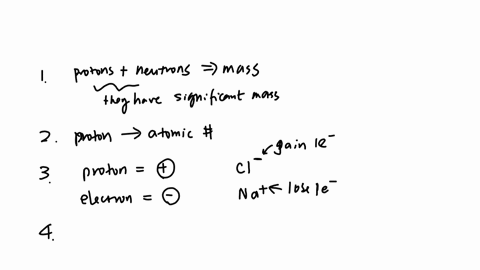 1. protons + neutrons ⇒ mass
they have significant mass
2. proton → atomic #
3. proton = ⊕ Cl⁻ ↙ gain 1e⁻
electron = ⊖ Na⁺ ← lose 1e⁻
4.